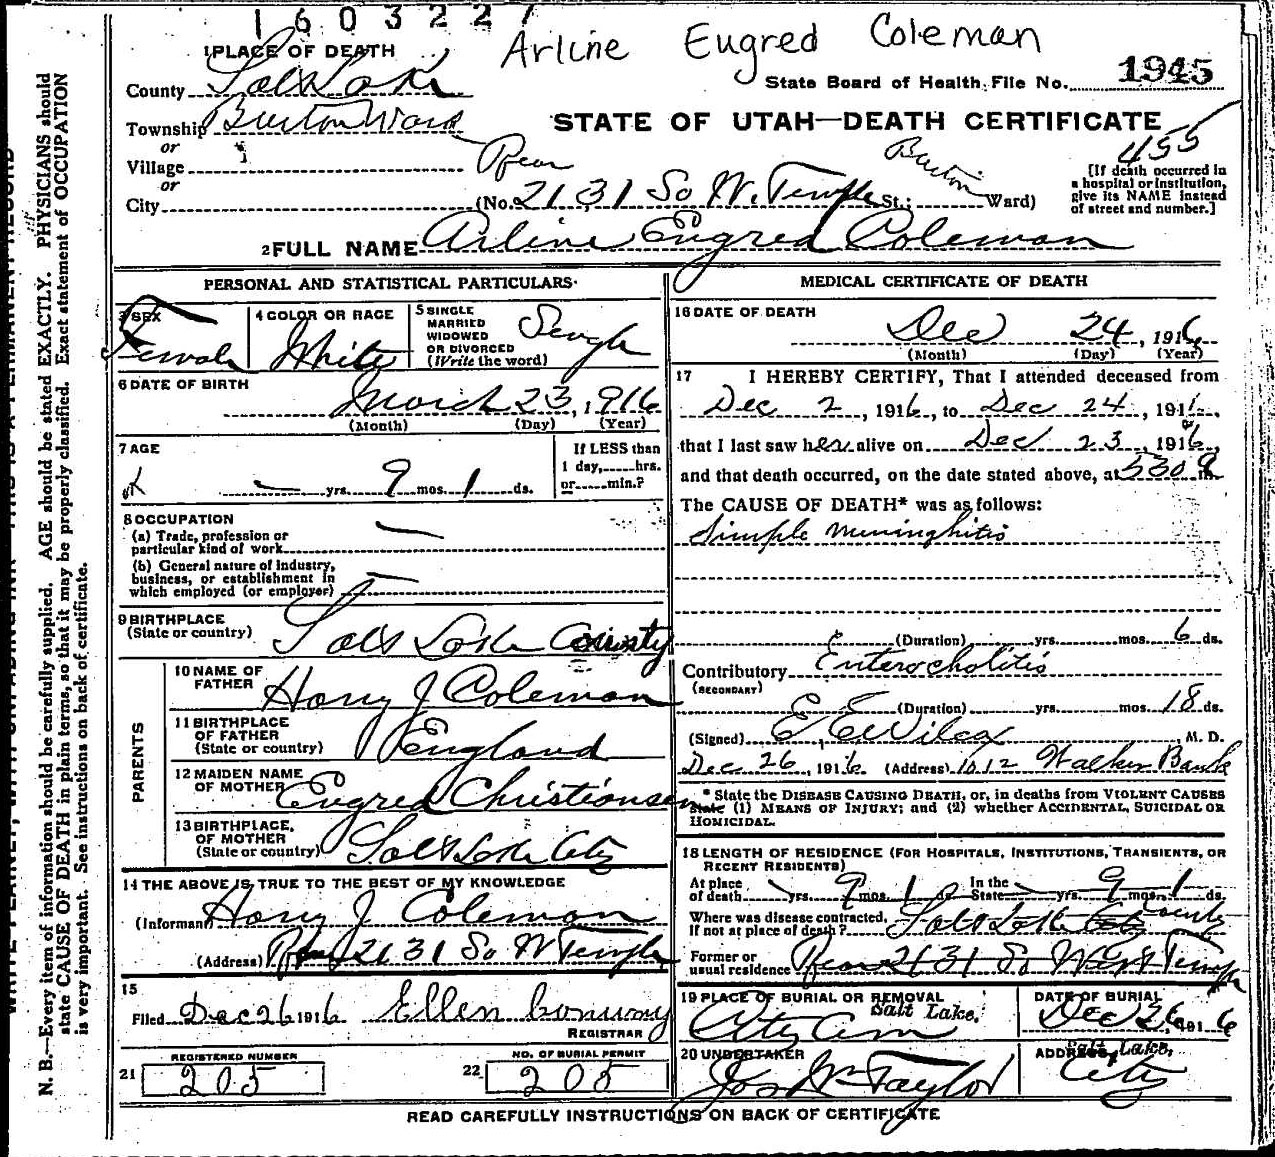 1603227
Arline Eugred Coleman
1 PLACE OF DEATH
State Board of Health File No. 1945
County Salt Lake
Township Burton Ward
STATE OF UTAH—DEATH CERTIFICATE
455
or
Village
or
City (No. Rear 2131 So W. Temple St.; Burton Ward)
[If death occurred in a hospital or institution, give its NAME instead of street and number.]
2 FULL NAME Arline Eugred Coleman
PERSONAL AND STATISTICAL PARTICULARS
3 SEX Female
4 COLOR OR RACE White
5 SINGLE MARRIED WIDOWED OR DIVORCED (Write the word) Single
6 DATE OF BIRTH
March 23, 1916
(Month) (Day) (Year)
7 AGE
— yrs. 9 mos. 1 ds.
If LESS than 1 day, hrs. or min.?
8 OCCUPATION
(a) Trade, profession or particular kind of work —
(b) General nature of industry, business, or establishment in which employed (or employer) —
9 BIRTHPLACE
(State or country) Salt Lake County
PARENTS
10 NAME OF FATHER Harry J Coleman
11 BIRTHPLACE OF FATHER (State or country) England
12 MAIDEN NAME OF MOTHER Eugred Christionsen
13 BIRTHPLACE, OF MOTHER (State or country) Salt Lake City
14 THE ABOVE IS TRUE TO THE BEST OF MY KNOWLEDGE
(Informant) Harry J Coleman
(Address) Rear 2131 So W Temple
15
Filed Dec 26 1916 Ellen Conway
REGISTRAR
REGISTERED NUMBER
21 205
NO. OF BURIAL PERMIT
22 205
MEDICAL CERTIFICATE OF DEATH
16 DATE OF DEATH
Dec 24, 1916
(Month) (Day) (Year)
17 I HEREBY CERTIFY, That I attended deceased from
Dec 2, 1916, to Dec 24, 1916,
that I last saw her alive on Dec 23, 1916,
and that death occurred, on the date stated above, at 530 m.
The CAUSE OF DEATH* was as follows:
Simple Meninghitis
(Duration) yrs. mos. 6 ds.
Contributory Enterocholitis
(SECONDARY)
(Duration) yrs. mos. 18 ds.
(Signed) E E Wilcox, M. D.
Dec 26, 1916 (Address) 1012 Walker Bank
* State the DISEASE CAUSING DEATH, or, in deaths from VIOLENT CAUSES
State (1) MEANS OF INJURY; and (2) whether ACCIDENTAL, SUICIDAL OR
HOMICIDAL.
18 LENGTH OF RESIDENCE (FOR HOSPITALS, INSTITUTIONS, TRANSIENTS, OR
RECENT RESIDENTS)
At place of death — yrs. 9 mos. 1 ds. In the State — yrs. 9 mos. 1 ds.
Where was disease contracted, If not at place of death? Salt Lake City County
Former or usual residence Rear 2131 So West Temple
19 PLACE OF BURIAL OR REMOVAL
Salt Lake.
City Cem
DATE OF BURIAL
Dec 26 1916
20 UNDERTAKER
Jos Wm Taylor
ADDRESS
Salt Lake,
City
READ CAREFULLY INSTRUCTIONS ON BACK OF CERTIFICATE
N. B.—Every item of information should be carefully supplied. AGE should be stated EXACTLY. PHYSICIANS should
state CAUSE OF DEATH in plain terms, so that it may be properly classified. Exact statement of OCCUPATION
is very important. See instructions on back of certificate.